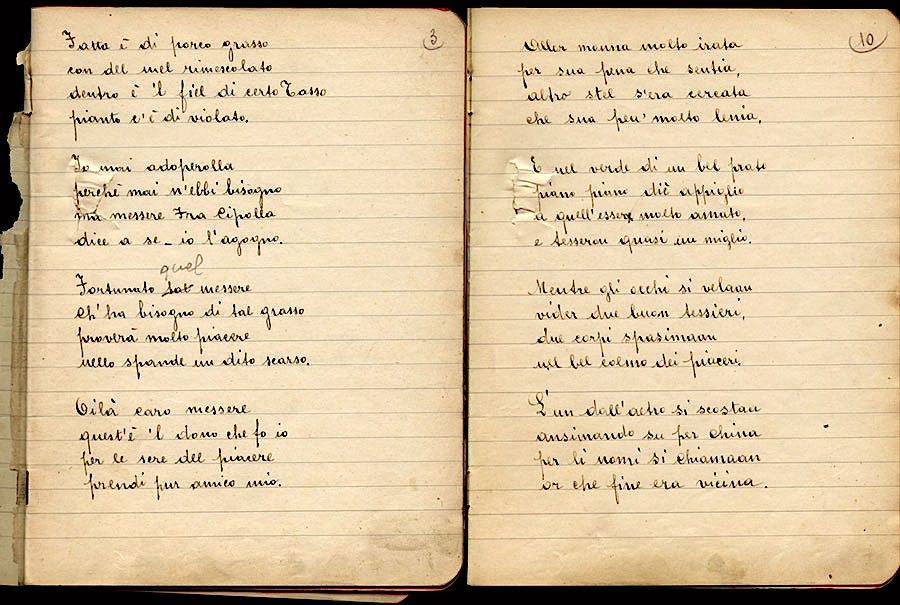 3
Fatta è di porco grasso
con del mel rimescolato
dentro è 'l fiel di certo Tasso
pianto c'è di violato.
Io mai adoperolla
perchè mai n'ebbi bisogno
ma messere Fra Cipolla
dice a se _ io l'agogno.
quel
Fortunato tat messere
Ch'ha bisogno di tal grasso
proverà molto piacere
nello spande un dito scarso.
Oilà caro messere
quest'è 'l dono che fo io
per le sere del piacere
prendi pur amico mio.
10
Oller monna molto irata
per sua pena che sentia,
altro stel s'era cercata
che sua pen' molto lenia,
E nel verde di un bel prato
piano piano diè appiglio
a quell'esser molto amato,
e tesseron quasi un miglio.
Mentre gli occhi si velaan
vider due buon tessieri,
due corpi spasimaan
nel bel colmo dei piaceri.
L'un dall'altro si scostan
ansimando su per china
per li nomi si chiamaan
or che fine era vicina.